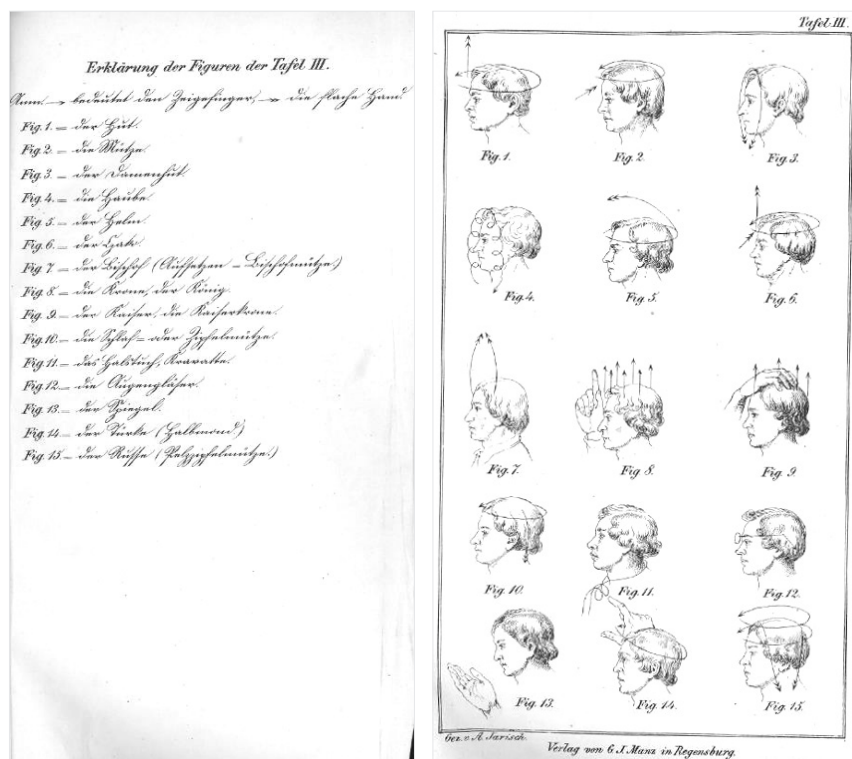 Erklärung der Figuren der Tafel III.
Anm. → bedeutet den Zeigefinger, die flache Hand.
Fig. 1. = der Hut.
Fig. 2. = die Mütze.
Fig. 3. = der Damenhut.
Fig. 4. = die Haube.
Fig. 5. = der Helm.
Fig. 6. = der
Fig. 7. = der Bischof (Aufsetzen = Bischofmütze.)
Fig. 8. = die Krone, der König.
Fig. 9. = der Kaiser, die Kaiserkrone.
Fig. 10. = die Schlaf= oder Zipfelmütze.
Fig. 11. = das Halstuch, Kravatte.
Fig. 12. = die Augengläser.
Fig. 13. = der Spiegel.
Fig. 14. = der Türke (Halbmond.)
Fig. 15. = der Russe (Pelzzipfelmütze.)
Tafel III.
Fig. 1. Fig. 2. Fig. 3.
Fig. 4. Fig. 5. Fig. 6.
Fig. 7. Fig. 8. Fig. 9.
Fig. 10. Fig. 11. Fig. 12.
Fig. 13. Fig. 14. Fig. 15.
Gez. v. A. Jarisch.
Verlag von G. J. Manz in Regensburg.